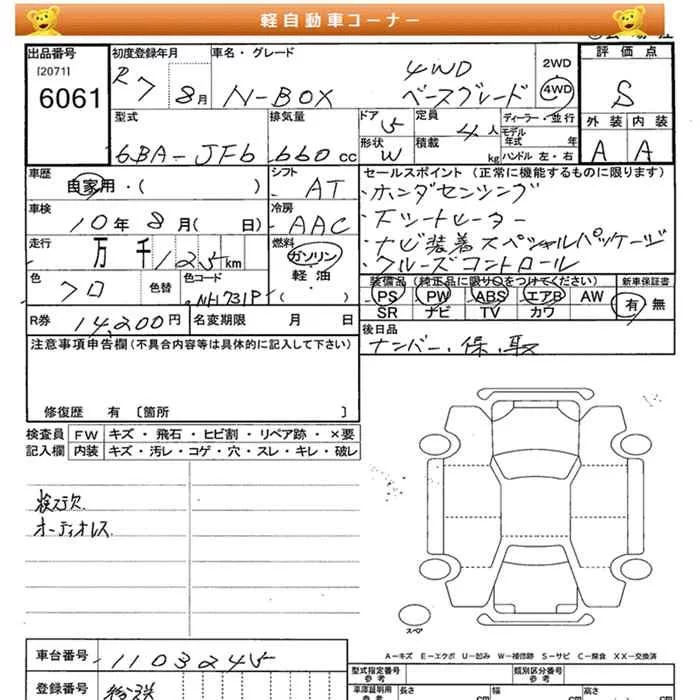 軽自動車コーナー
出品番号
[2071]
6061
初度登録年月
R7 8月
車名・グレード
N-BOX
4WD
ベースグレード
2WD
4WD
評価点
S
外装 内装
A A
型式
6BA-JF6
排気量
660cc
ドア
5
定員
4人
形状
W
積載
kg
ディーラー・並行
モデル年式 年
ハンドル 左・右
車歴
自家用・( )
シフト
AT
車検
10年8月( 日)
冷房
AAC
走行
万 千 125km
燃料
ガソリン
軽・油
・( )
色
クロ
色替
色コード
NH731P
セールスポイント (正常に機能するものに限ります)
・ホンダセンシング
・シートヒーター
・ナビ装着スペシャルパッケージ
・クルーズコントロール
装備品 (純正品に限り○をつけてください)
PS PW ABS エアB AW
SR ナビ TV カワ
新車保証書
有 無
R券 14,200円
名変期限 月 日
後日品
ナンバー、保、取
注意事項申告欄(不具合内容等は具体的に記入して下さい)
修復歴 有 〔箇所 〕
検査員記入欄
FW キズ・飛石・ヒビ割・リペア跡・×要
内装 キズ・汚レ・コゲ・穴・スレ・キレ・破レ
オーディオレス
スペア
A-キズ E-エクボ U-凹み W-補修跡 S-サビ C-腐食 XX-交換済
車台番号
1103245
登録番号
型式指定番号
参考
類別区分番号
参考
車庫証明用
参考
長さ
cm
幅
cm
高さ
cm